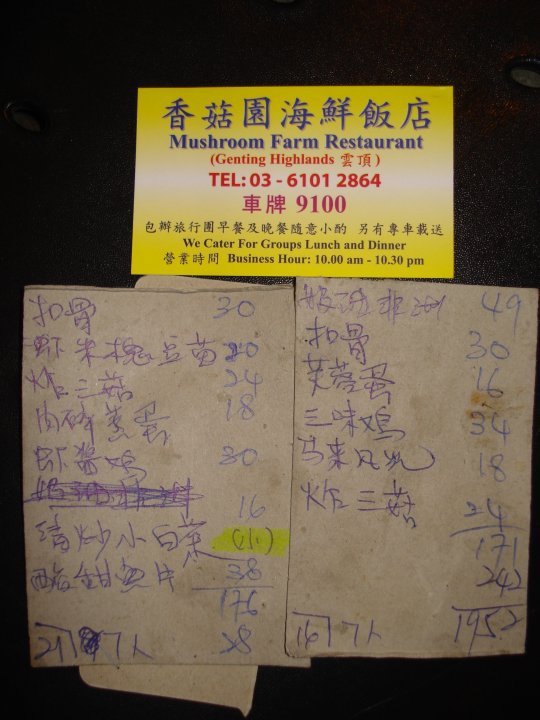 香菇園海鮮飯店
Mushroom Farm Restaurant
(Genting Highlands 雲頂)
TEL: 03 - 6101 2864
車牌 9100
包辦旅行團早餐及晚餐隨意小酌 另有專車載送
We Cater For Groups Lunch and Dinner
營業時間 Business Hour: 10.00 am - 10.30 pm
扣骨 30
虾米 豆苗 20
炸三菇 24
肉碎蒸蛋 18
虾酱鸡 30
16
清炒小白菜 (小)
鱼片 38
176
21 7人 28
49
扣骨 30
芙蓉蛋 16
三味鸡 34
马来风光 18
炸三菇 24
171
242
16 7人 1952